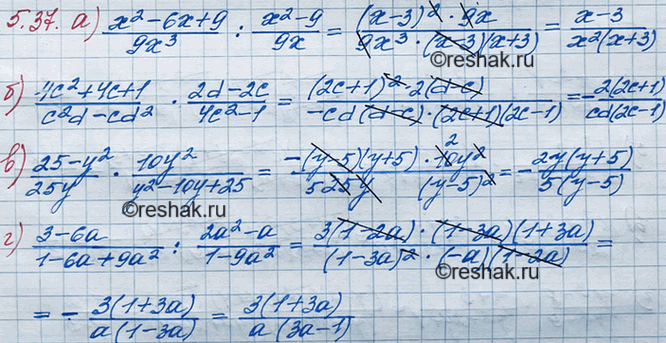 5.37. а) (x²-6x+9)/(9x³) : (x²-9)/(9x) = ((x-3)²·9x)/(9x³·(x-3)(x+3)) = (x-3)/(x²(x+3))
б) (4c²+4c+1)/(c²d-cd²) · (2d-2c)/(4c²-1) = ((2c+1)²·2(d-c))/(-cd(d-c)·(2c+1)(2c-1)) = -(2(2c+1))/(cd(2c-1))
©reshak.ru
в) (25-y²)/(25y) · (10y²)/(y²-10y+25) = (-(y-5)(y+5)·10y²)/(25y(y-5)²) = -(2y(y+5))/(5(y-5))
©reshak.ru
г) (3-6a)/(1-6a+9a²) : (2a²-a)/(1-9a²) = (3(1-2a)·(1-3a)(1+3a))/((1-3a)²·(-a)(1-2a)) =
= -(3(1+3a))/(a(1-3a)) = (3(1+3a))/(a(3a-1))
©reshak.ru